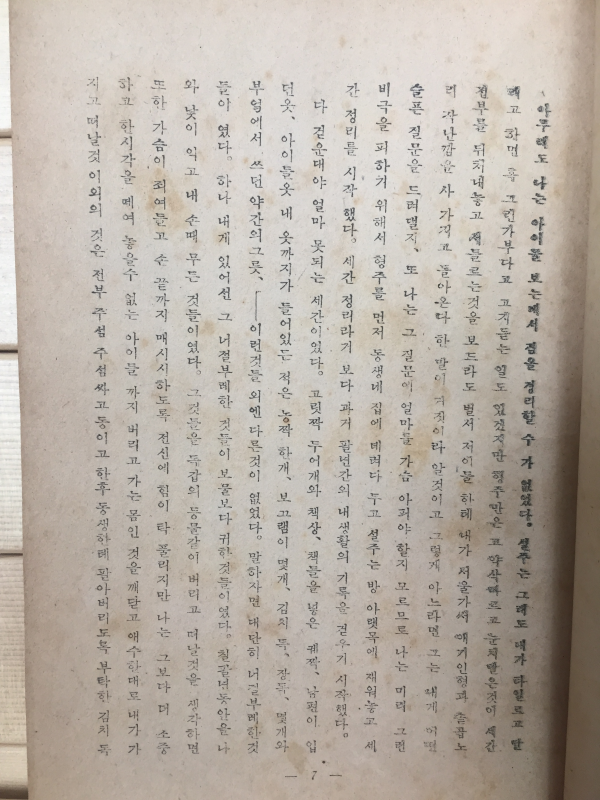 아무래도 나는 아이를 보는데서 짐을 정리할 수가 없었다. 설주는 그래도 내가 타일르고 달
래고 하면 흑 그런가부다고 고개듣는 일도 있겠지만 형주만은 고 약삭빠르고 눈치빨은것이 세간
전부를 뒤처내놓고 서들르는것을 보드라도 벌서 저이들 하테 내가 서울가서 애기인형과 슬픔노
리 작난감을 사 가지고 돌아온다 한 말이 거짓이라 알것이고 그렇게 아느라면 그는 내게 어떤
슬픈 질문을 드러댈지, 또 나는 그 질문에 얼마를 가슴 아퍼야 할지 모르므로 나는 미리 그런
비극을 피하기 위해서 형주를 먼저 동생네 집에 데려다 두고 설주는 방 아랫목에 재워놓고 세
간 정리를 시작했다. 세간 정리라기 보다 과거 팔년간의 내생활의 기록을 걷우기 시작했다.
다 걷운대야 얼마 못되는 세간이었다. 고릿짝 두어개와 책상, 책들을 넣은 궤짝, 남편이 입
던옷, 아이들옷 내 옷까지가 들어있는 적은 농짝 한개, 보고램이 몇개, 김치 독, 장독, 몇개와
부엌에서 쓰던 약간의그릇, ──이런것들 외엔 다른것이 없었다. 말하자면 대단히 너절부레한것
들이 였다. 하나 내게 있어선 그 너절부레한 것들이 보물보다 귀한것들이였다. 칠팔년동안을 나
와 낯이 익고 내 손때 무든 것들이였다. 그것들을 독갑의 등물같이 버리고 떠날것을 생각하면
또한 가슴이 죄여들고 손 끝까지 매시시하도록 전신에 힘이 탁 풀리지만 나는 그보다 더 소중
하고 한시각을 떼여 놓을수 없는 아이들 까지 버리고 가는 몸인 것을 깨닫고 애수한대로 내가 가
지고 떠날것 이외의 것은 전부 주섬 주섬 싸고 동이고 한후 동생한테 팔아버리도록 부탁한 김치 독
— 7 —